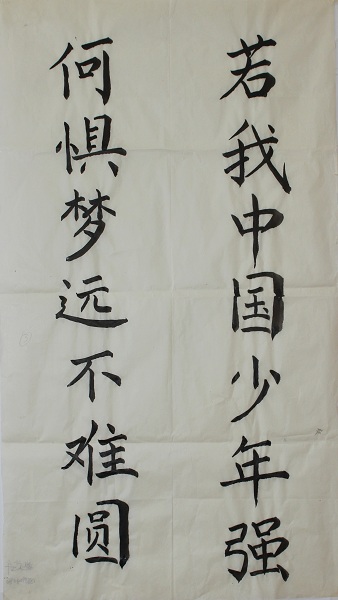 若我中国少年强
何惧梦远不难圆